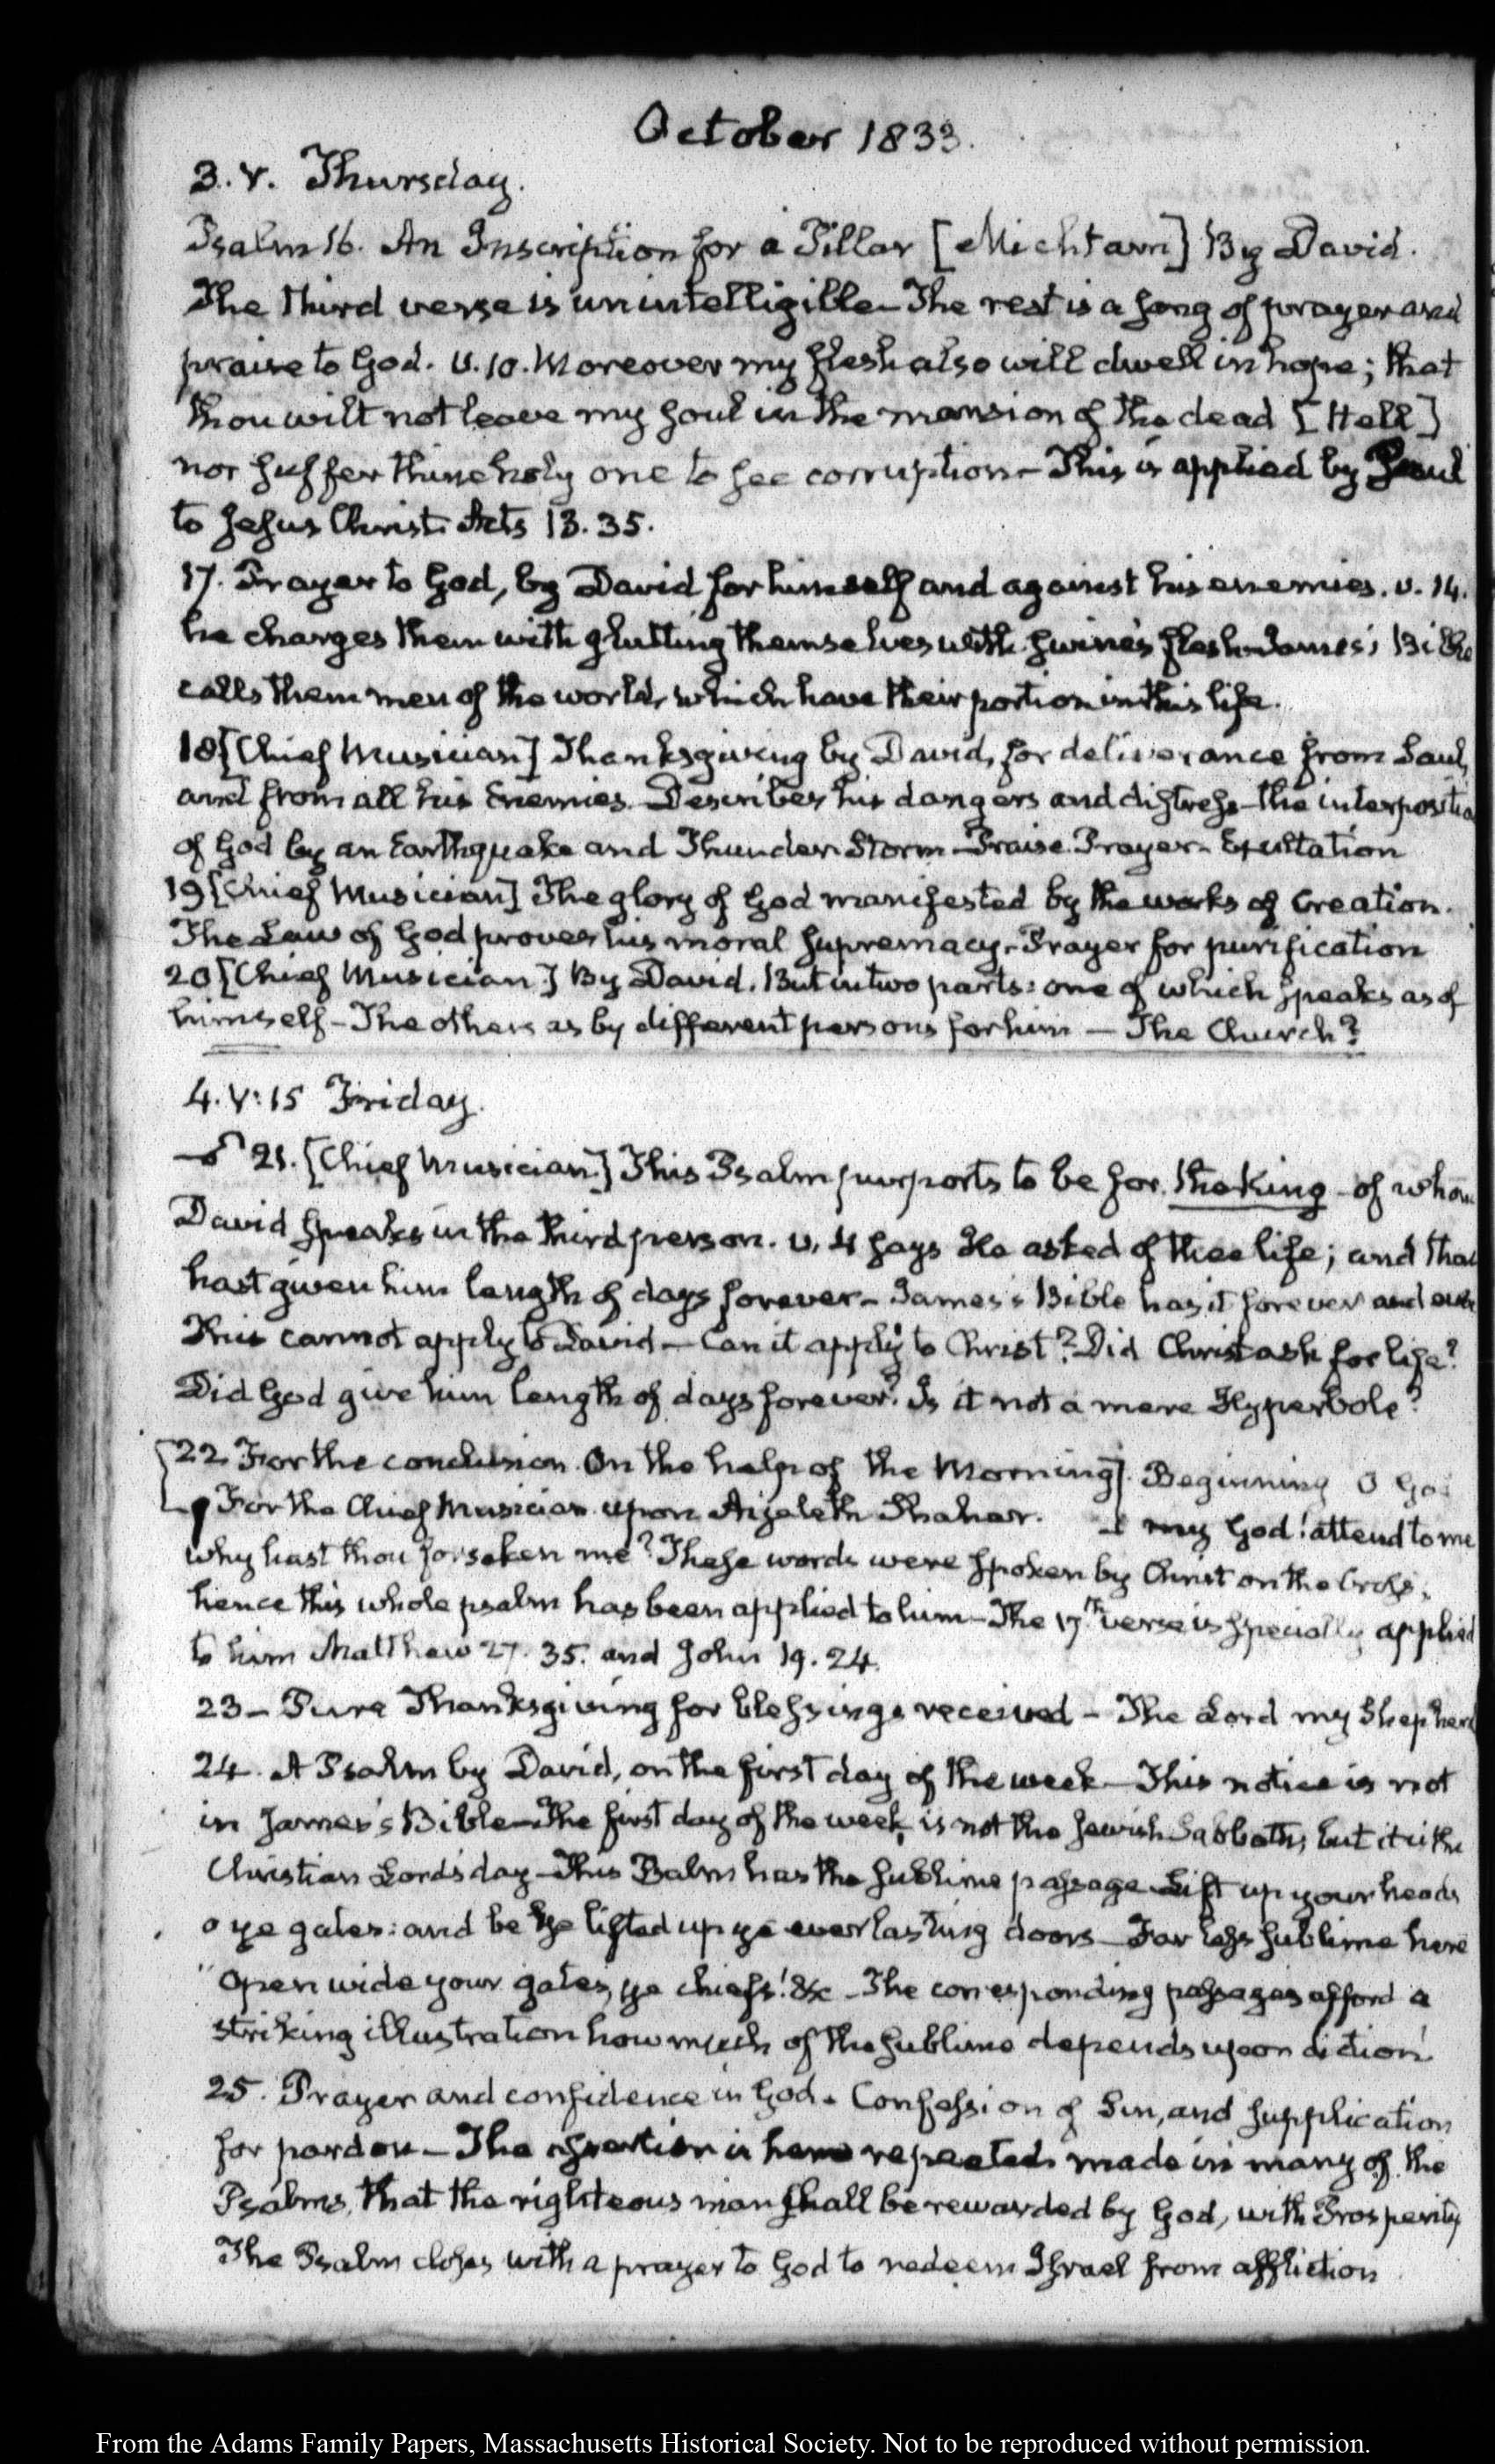 October 1833.
3. V. Thursday.
Psalm 16. An Inscription for a Pillar [Michtam] By David.
The third verse is unintelligible – The rest is a song of prayer and
praise to God. v. 10. Moreover my flesh also will dwell in hope; that
thou wilt not leave my soul in the mansion of the dead [Hell]
nor suffer thine holy one to see corruption – This is applied by Paul
to Jesus Christ. Acts 13. 35.
17. Prayer to God, by David for himself and against his enemies. v. 14.
he charges them with glutting themselves with swine's flesh – James's Bible
calls them men of the world, which have their portion in this life.
18 [Chief Musician] Thanksgiving by David, for deliverance from Saul,
and from all his Enemies. Describes his dangers and distress – the interpositio
of God by an Earthquake and Thunder Storm – Praise. Prayer. Exultation
19 [Chief Musician] The glory of God manifested by the works of Creation.
The Law of God proves his moral supremacy – Prayer for purification
20 [Chief Musician] By David. But in two parts: one of which speaks as of
himself – The others as by different persons for him — The Church?
4. V:15 Friday.
21. [Chief Musician] This Psalm purports to be for the King – of whom
David speaks in the third person. v. 4 says He asked of thee life; and thou
hast given him length of days forever – James's Bible has it forever and ever
This cannot apply to David – Can it apply to Christ? Did Christ ask for life?
Did God give him length of days forever? Is it not a mere Hyperbole?
[22 For the conclusion. On the help of the Morning] Beginning O God
For the Chief Musician upon Aijeleth Shahar. my God! attend to me
why hast thou forsaken me? These words were spoken by Christ on the Cross,
hence this whole psalm has been applied to him – The 17th verse is specially applied
to him Matthew 27. 35. and John 19. 24.
23 – Pure Thanksgiving for blessings received – The Lord my Shepherd
24. A Psalm by David, on the first day of the week – This notice is not
in James's Bible – The first day of the week, is not the Jewish Sabbath, but it is the
Christian Lord's day – This Psalm has the sublime passage Lift up your heads
o ye gates: and be ye lifted up ye everlasting doors – Far less sublime here
"Open wide your gates, ye chiefs! &c – The corresponding passages afford a
striking illustration how much of the sublime depends upon diction
25. Prayer and confidence in God. Confession of Sin, and supplication
for pardon – The assertion is here repeated made in many of the
Psalms, that the righteous man shall be rewarded by God, with Prosperity
The Psalm closes with a prayer to God to redeem Israel from affliction
From the Adams Family Papers, Massachusetts Historical Society. Not to be reproduced without permission.